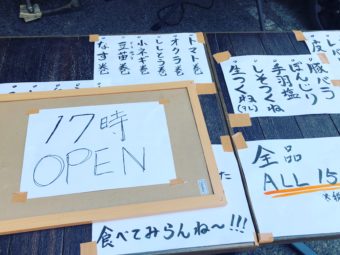 豚バラ
ぼんじり
手羽塩
しそつくね
トマト巻
オクラ巻
ししとう巻
小ネギ巻
豆苗巻
なす巻
17時
OPEN
全品
ALL 15
食べてみらんね〜!!!